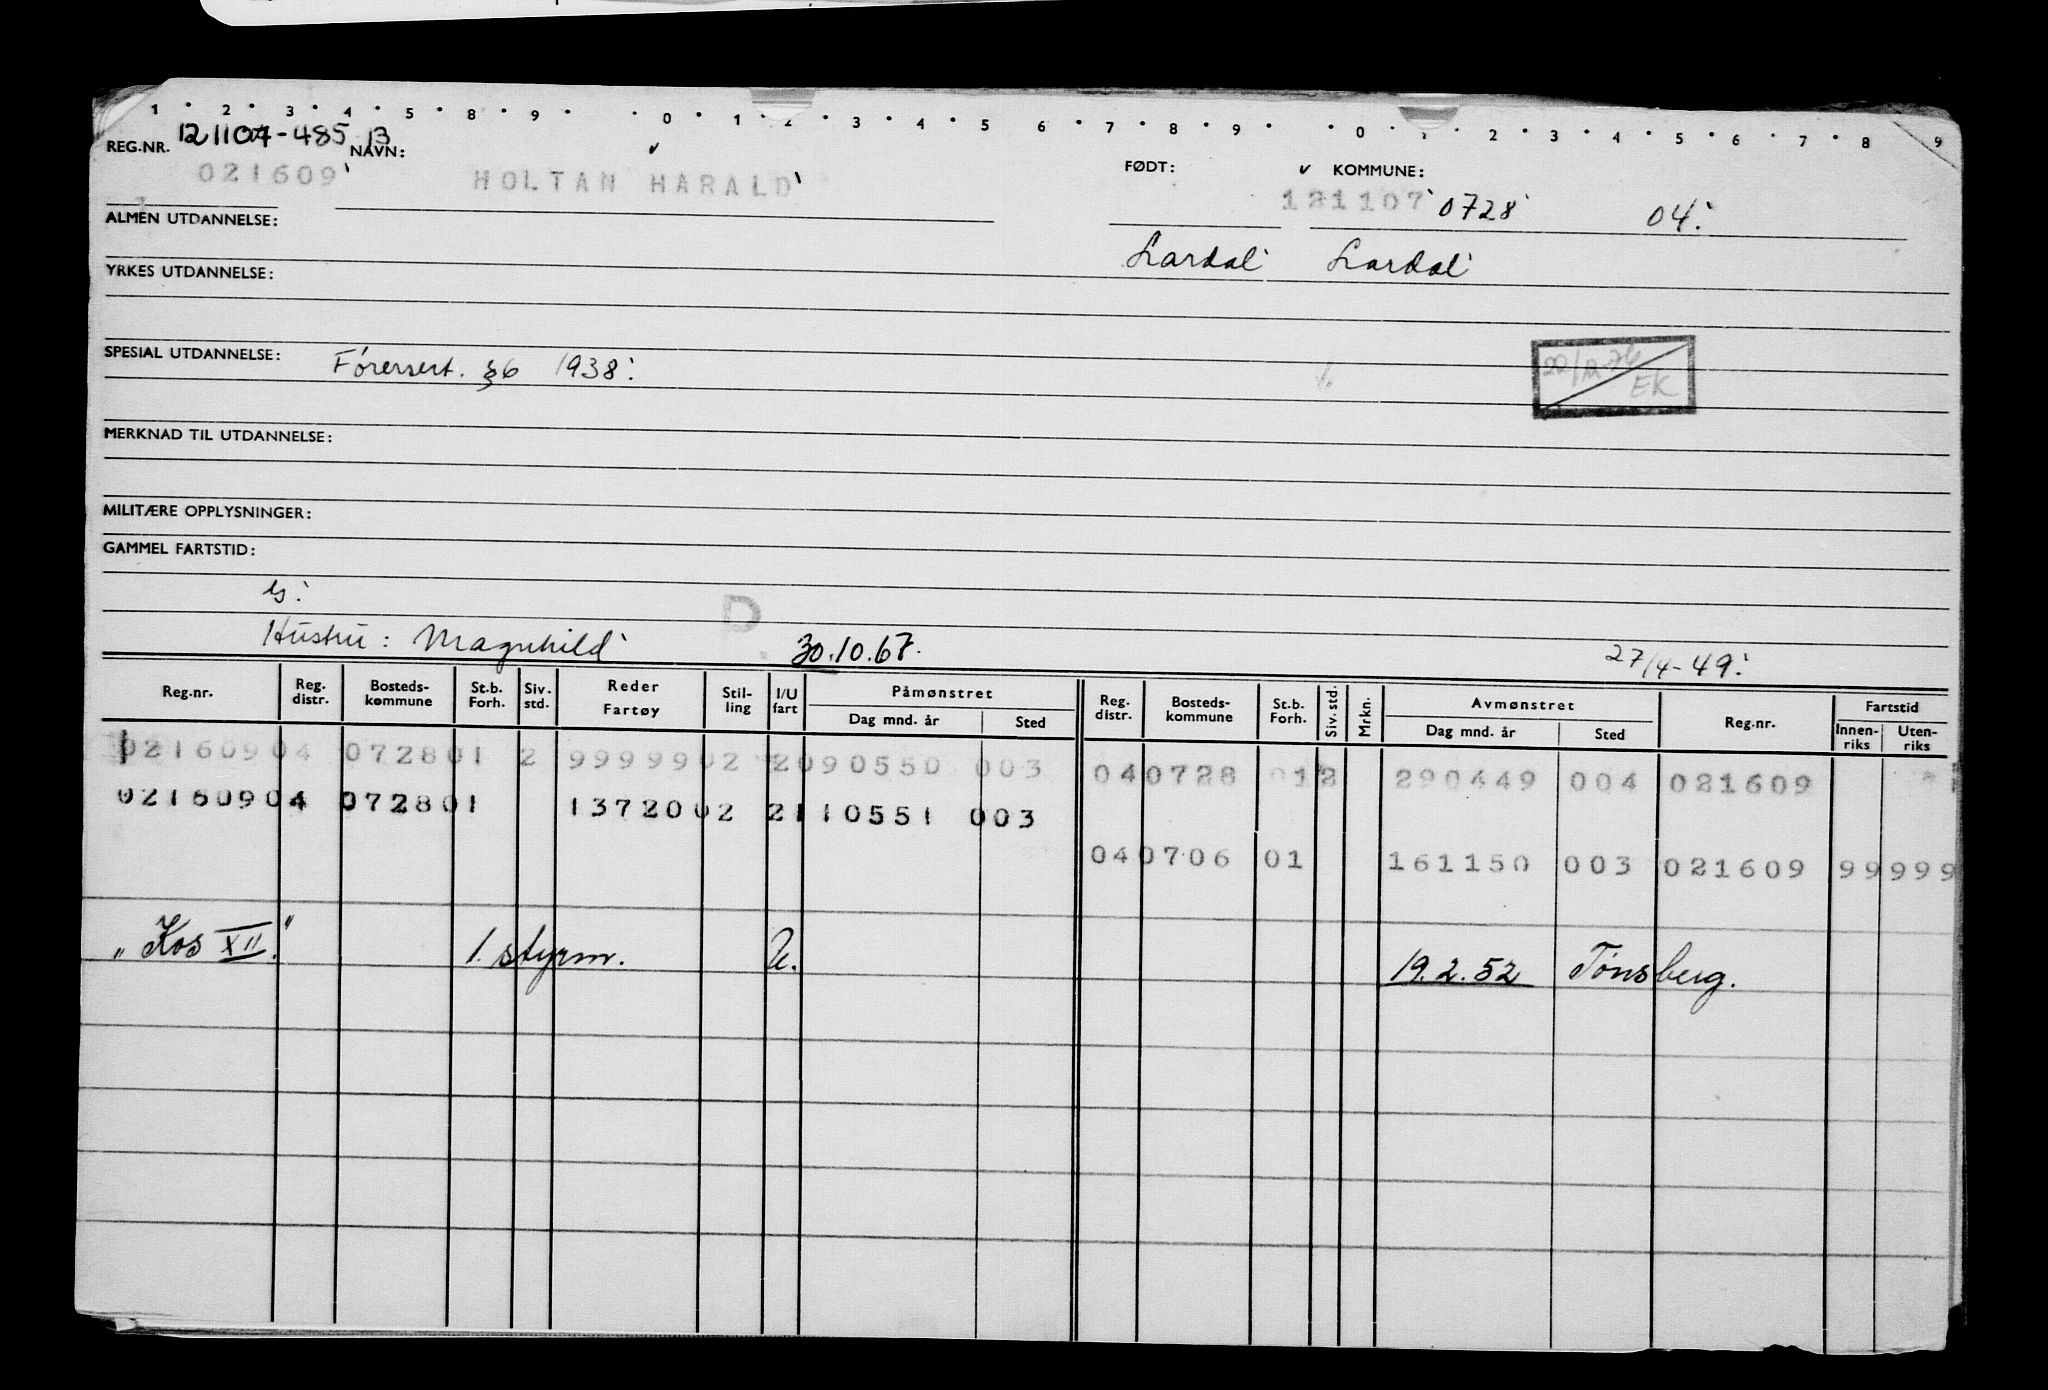 1 2 3 4 5 8 9 0 1 2 3 4 5 6 7 8 9 0 1 2 3 4 5 6 7 8 9
REG.NR. 121104-485 13 NAVN: FØDT: KOMMUNE:
021609 HOLTAN HARALD 121107 0728 04
ALMEN UTDANNELSE:
Lardal Lardal
YRKES UTDANNELSE:
SPESIAL UTDANNELSE: Førersert. §6 1938.
20/12-76 EK
MERKNAD TIL UTDANNELSE:
MILITÆRE OPPLYSNINGER:
GAMMEL FARTSTID:
D
Hustru: Magnhild 30.10.67. 27/4-49.
Reg.nr. Reg. distr. Bosteds-kommune St.b. Forh. Siv. std. Reder Fartøy Stil-ling I/U fart Påmønstret Dag mnd. år Sted Reg. distr. Bosteds-kommune St.b. Forh. Siv. std. Mrkn. Avmønstret Dag mnd. år Sted Reg.nr. Fartstid Innen-riks Uten-riks
021609 04 0728 01 2 99999 02 2 090550 003 04 0728 01 2 290449 004 021609
021609 04 0728 01 13720 02 2 110551 003
04 0706 01 161150 003 021609 99 999
"Kos XII." 1. styrm. U. 19.2.52 Tønsberg.